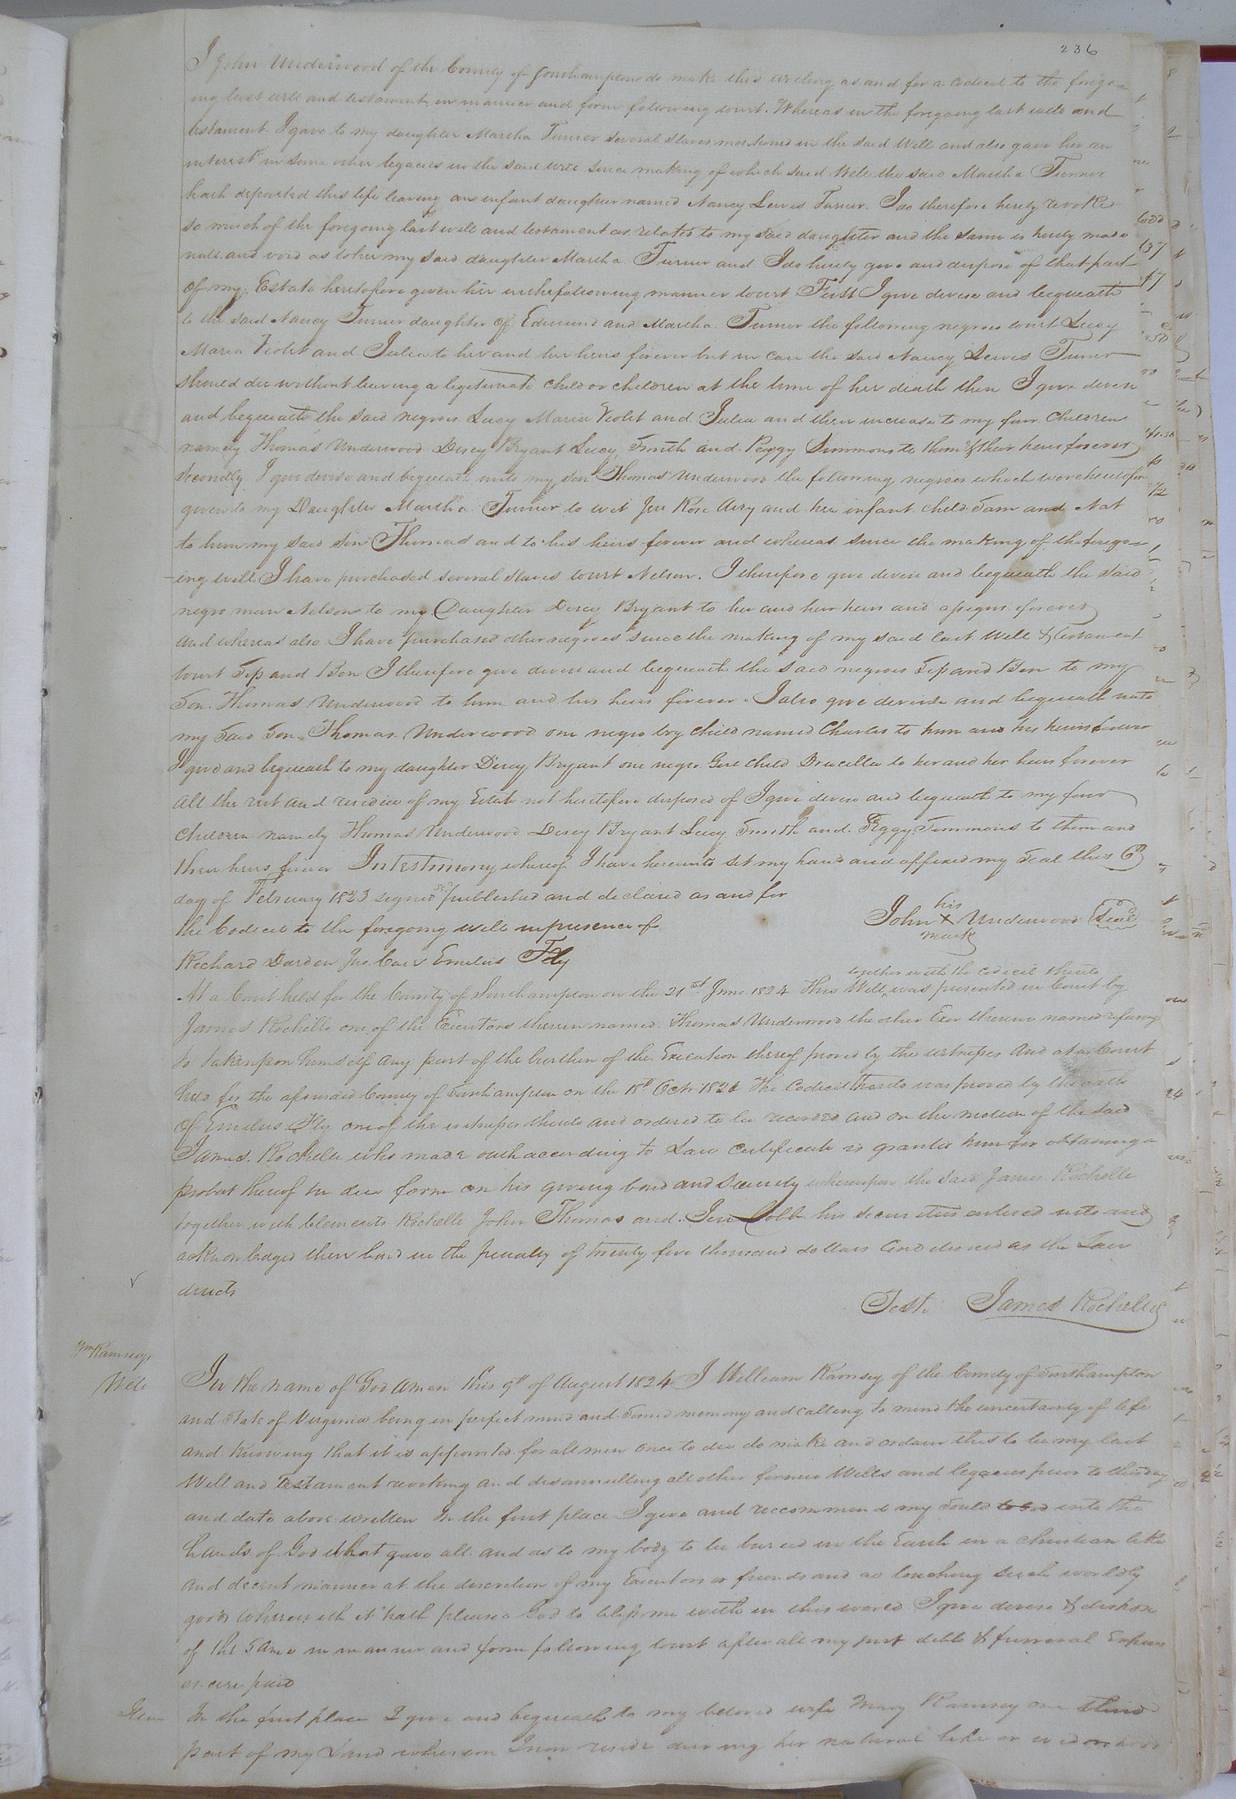 236
I John Underwood of the County of Southampton do make this writing as and for a codicil to the forego-
ing last will and testament in manner and form following towit. Whereas in the foregoing last will and
testament I gave to my daughter Martha Turner several slaves mentioned in the said Will and also gave her an
interest in some other legacies in the said will since making of which said Will the said Martha Turner
hath departed this life leaving an infant daughter named Nancy Lewis Turner. I do therefore hereby revoke
so much of the foregoing last will and testament as relates to my said daughter and the same is hereby made
null and void as to her my said daughter Martha Turner and I do hereby give and dispose of that part
of my Estate heretofore given her in the following manner towit First I give devise and bequeath
to the said Nancy Turner daughter of Edmund and Martha Turner the following negroes towit Lucy
Maria Violet and Julia to her and her heirs forever but in case the said Nancy Lewis Turner
should die without leaving a legitimate child or children at the time of her death then I give devise
and bequeath the said negroes Lucy Maria Violet and Julia and their increase to my four children
namely Thomas Underwood Dicey Bryant Lucy Smith and Peggy Simmons to them & their heirs forever
Secondly I give devise and bequeath unto my son Thomas Underwood the following negroes which were heretofore
given to my Daughter Martha Turner to wit Jere Rose Airy and her infant child Sam and Nat
to him my said son Thomas and to his heirs forever and whereas since the making of the forego-
-ing will I have purchased several slaves towit Nelson. I therefore give devise and bequeath the said
negro man Nelson to my Daughter Dicey Bryant to her and her heirs and assigns forever
and whereas also I have purchased other negroes since the making of my said last Will & testament
towit Tip and Ben I therefore give devise and bequeath the said negroes Tip and Ben to my
Son Thomas Underwood to him and his heirs forever. I also give devise and bequeath unto
my said Son Thomas Underwood one negro boy child named Charles to him and his heirs forever
I give and bequeath to my daughter Dicey Bryant one negro Girl child Drucilla to her and her heirs forever
all the rest and residue of my Estate not heretofore disposed of I give devise and bequeath to my four
children namely Thomas Underwood Dicey Bryant Lucy Smith and Peggy Simmons to them and
their heirs forever In testimony whereof I have hereunto set my hand and affixed my seal this 6
day of February 1823 signed published and declared as and for
the Codicil to the foregoing will in presence of
his
John X Underwood Seal
mark
Richard Darden Emelius Fly
together with the codicil thereto
At a Court held for the County of Southampton on the 21st June 1824 This Will was presented in Court by
James Rochelle one of the Executors therein named Thomas Underwood the other Exor therein named refusing
to take upon himself any part of the burthen of the Execution thereof proved by the witnesses And at a Court
held for the aforesaid County of Southampton on the 18th Octr 1824 The Codicil thereto was proved by the oath
of Emelius Fly one of the witnesses thereto and ordered to be recorded and on the motion of the said
James Rochelle who made oath according to Law certificate is granted him for obtaining a
probat thereof in due form on his giving bond and security whereupon the said James Rochelle
together with Clements Rochelle John Thomas and Jere Cobb his securities entered into and
acknowledged their bond in the penalty of twenty five thousand dollars conditioned as the Law
directs
Test. James Rochelle
Wm Ramseys
Will
In the name of God amen this 9th of August 1824 I William Ramsey of the County of Southampton
and State of Virginia being in perfect mind and sound memory and calling to mind the uncertainty of life
and knowing that it is appointed for all men once to die do make and ordain this to be my last
Will and testament revoking and disannulling all other former Wills and legacies prior to this day
and date above written In the first place I give and reccommend my Soul to God into the
hands of God that gave all and as to my body to be buried in the Earth in a christian like
and decent manner at the discretion of my Executors or friends and as touching such worldly
goods wherewith it hath pleased God to bless me with in this world I give devise & dispose
of the same in manner and form following towit after all my just debts & funeral Expens
es are paid
Item
In the first place I give and bequeath to my beloved wife Mary Ramsey one third
part of my Land whereon I now reside during her natural life or widowhood